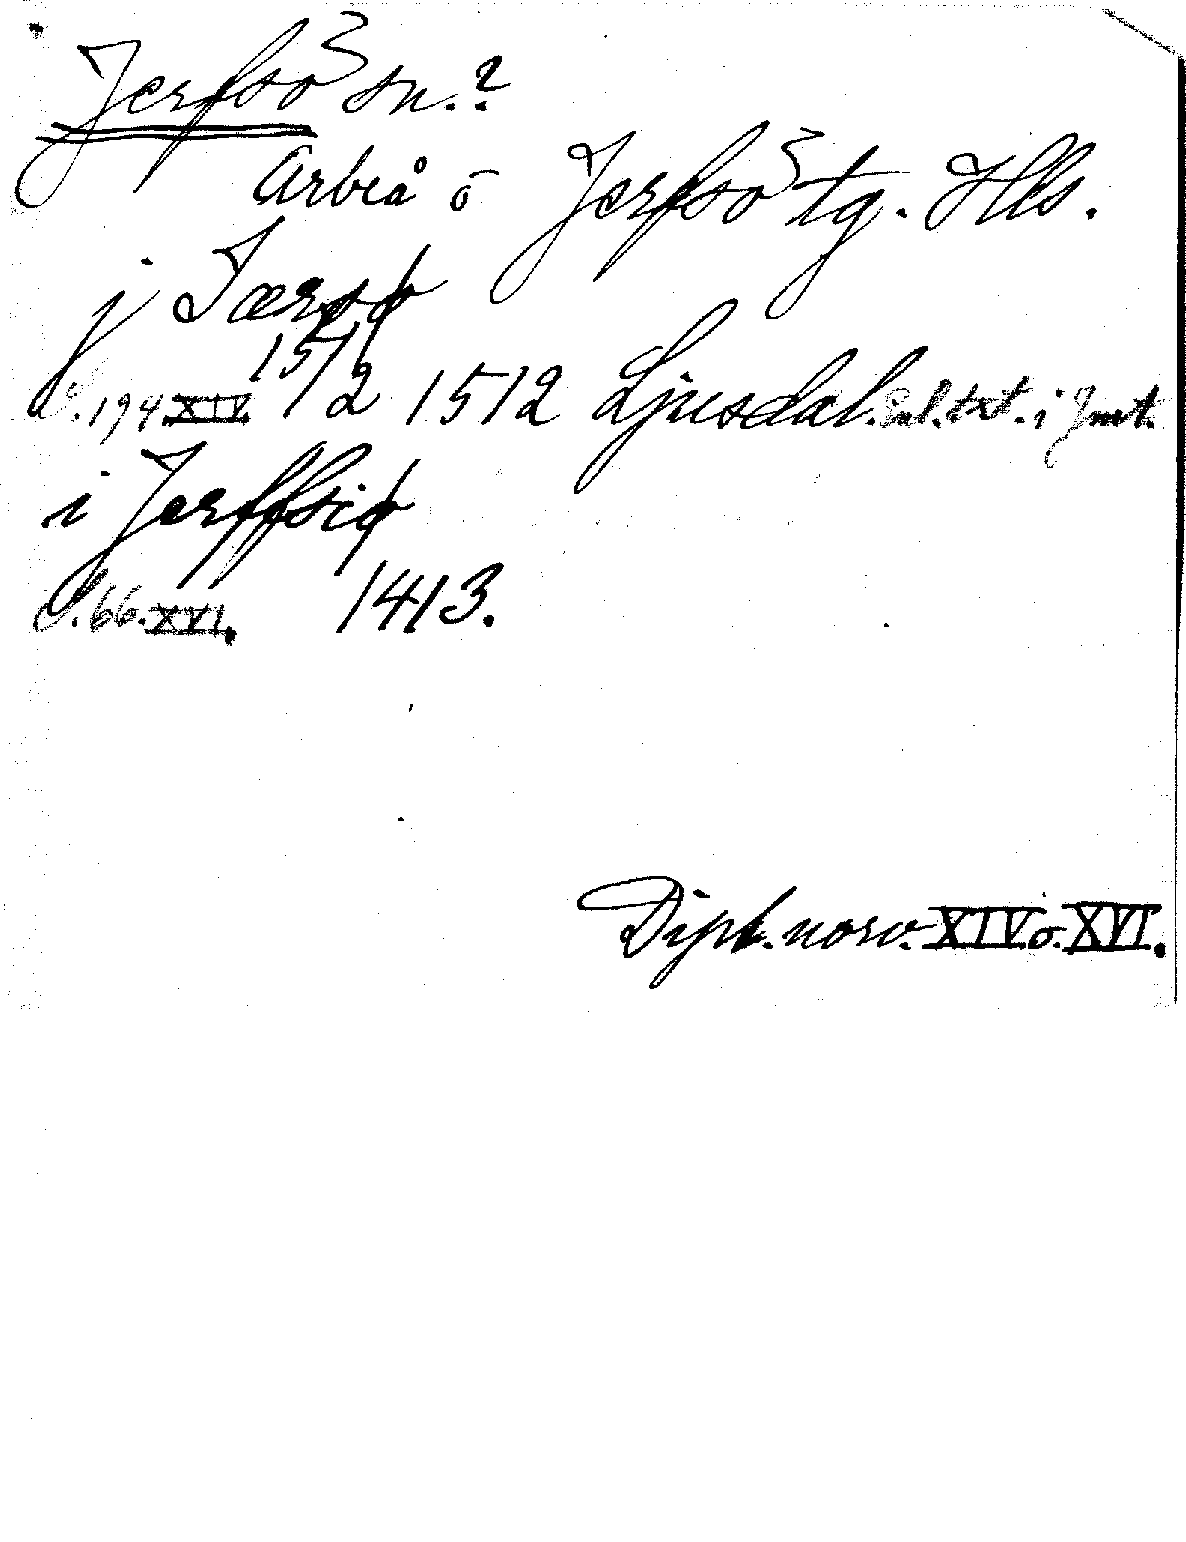 Jerfsö sn.?
Arbrå o Jerfsö tg. Hls.
j Jærsø
S. 194 XIV. 15/2 1512 Ljusdal. i Jmt.
i Jerffsiø
S. 66. XVI. 1413.
Dipl. norv. XIV o. XVI.